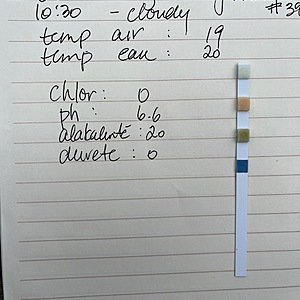 10:30 - cloudy #39
temp air : 19
temp eau : 20
Chlor : 0
ph : 6.6
alakalinité : 20
durete : 0